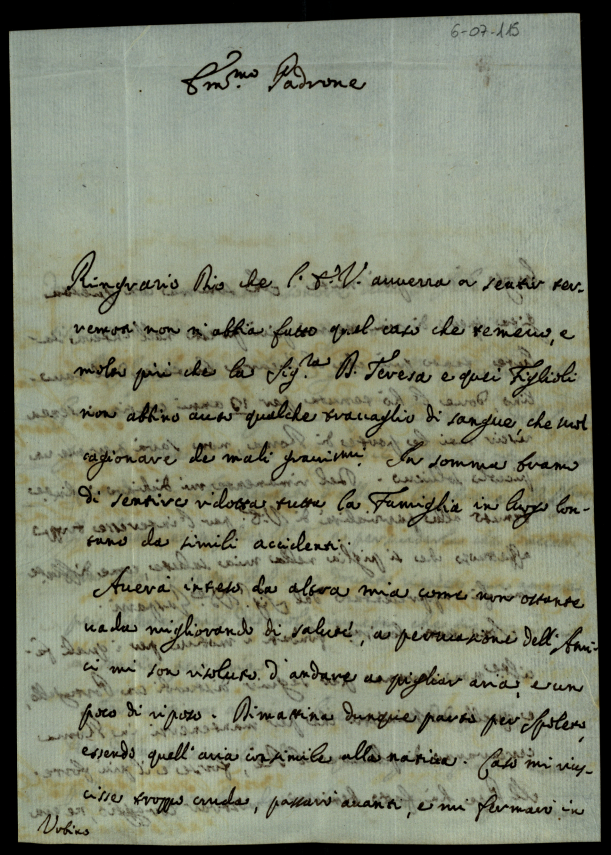 6-07-115
Em.mo Padrone
Ringrazio Dio che l' E. V. avvezza a sentir ter-
remoti non n'abbia fatto quel caso che temevo, e
molto più che la Sig.ra D. Teresa e quei Figlioli
non abbino auto qualche travaglio di sangue, che suol
cagionare de mali gravissimi. In somma bramo
di sentire ridotta tutta la Famiglia in luogo lon-
tano da simili accidenti.
Averà inteso da altra mia come non ostante
vada migliorando di salute, a persuasione dell' Ami-
ci mi son risoluto d'andare a pigliar aria, e un
poco di riposo. Dimattina dunque parto per Spoleto,
essendo quell'aria consimile alla nativa. Caso mi rius-
cisse troppo cruda, passarò avanti, e mi fermarò in
Urbino